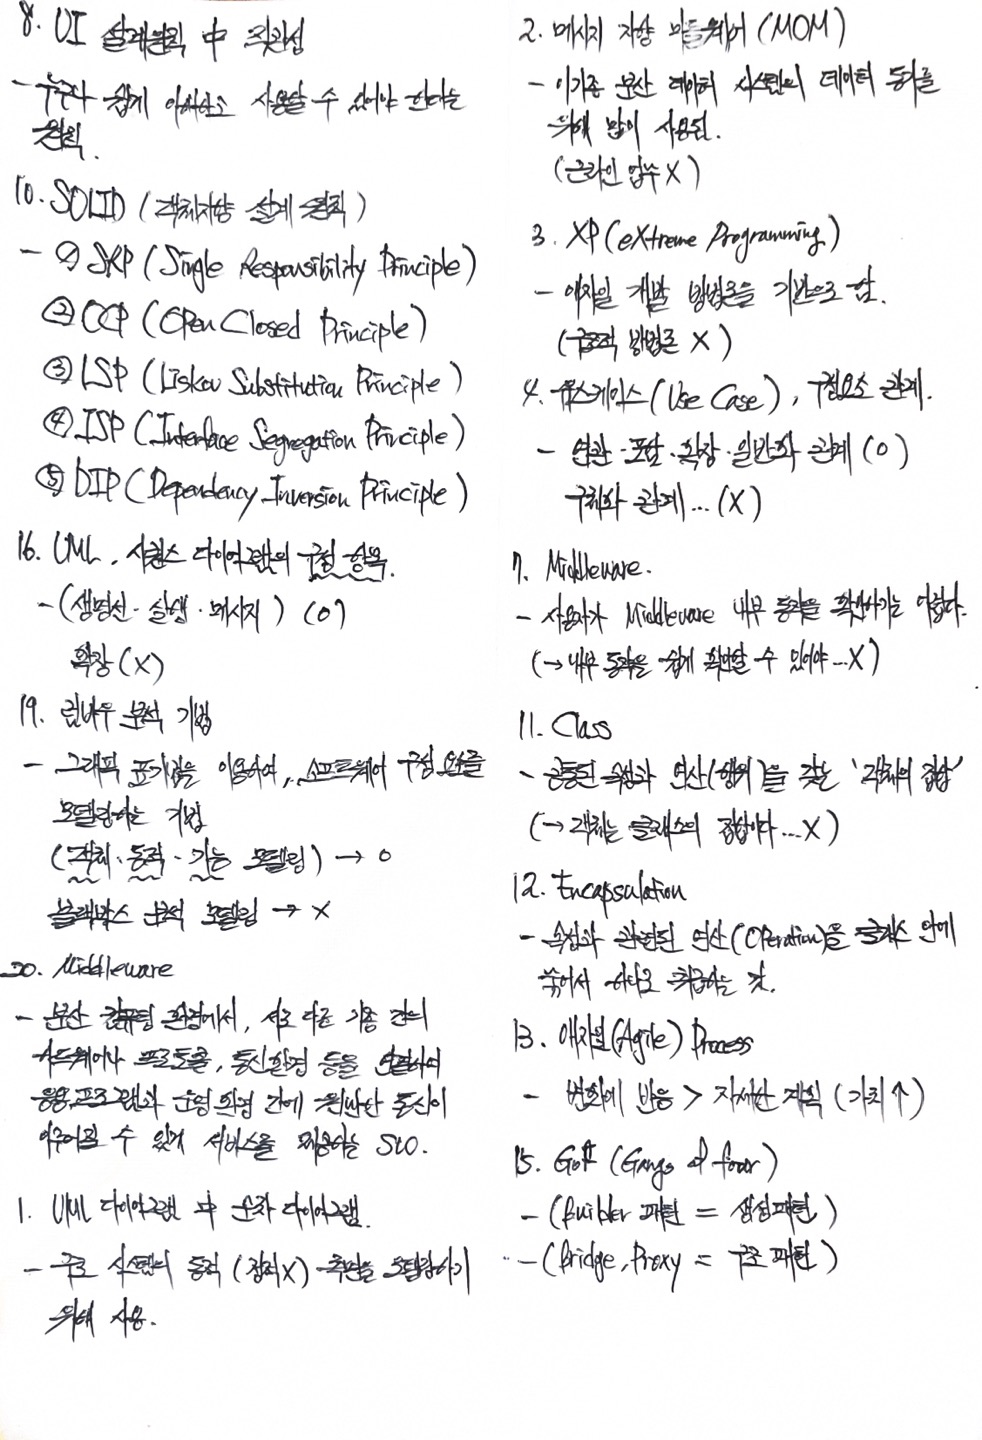 8. UI 설계원칙 中 직관성
- 누구나 쉽게 이해하고 사용할 수 있어야 한다는
원칙.
10. SOLID (객체지향 설계 원칙)
- ① SRP (Single Responsibility Principle)
② OCP (Open Closed Principle)
③ LSP (Liskov Substitution Principle)
④ ISP (Interface Segregation Principle)
⑤ DIP (Dependency Inversion Principle)
16. UML, 시퀀스 다이어그램의 구성 항목.
- (생명선 · 실행 · 메시지) (O)
확장 (X)
19. 럼바우 분석 기법
- 그래픽 표기법을 이용하여, 소프트웨어 구성 요소를
모델링하는 기법
(객체 · 동적 · 기능 모델링) → O
블랙박스 분석 모델링 → X
20. Middleware
- 분산 컴퓨팅 환경에서, 서로 다른 기종 간의
하드웨어나 프로토콜, 통신환경 등을 연결하여
응용프로그램과 운영 환경 간에 원만한 통신이
이루어질 수 있게 서비스를 제공하는 SW.
1. UML 다이어그램 中 순차 다이어그램.
- 구조 시스템의 동적 (정적X) 측면을 모델링하기
위해 사용.
2. 메시지 지향 미들웨어 (MOM)
- 이기종 분산 데이터 시스템의 데이터 동기를
위해 많이 사용됨.
(온라인 업무 X)
3. XP (eXtreme Programming)
- 애자일 개발 방법론을 기반으로 함.
(구조적 방법론 X)
4. 유스케이스 (Use Case), 구성요소 관계.
- 연관 · 포함 · 확장 · 일반화 관계 (O)
구체화 관계... (X)
7. Middleware.
- 사용자가 Middleware 내부 동작을 확인하기는 어렵다.
(→ 내부 동작을 쉽게 확인할 수 있어야...X)
11. Class
- 공통된 속성과 연산(행위)을 갖는 '객체의 집합'
(→ 객체는 클래스의 집합이다...X)
12. Encapsulation
- 속성과 관련된 연산(Operation)을 클래스 안에
묶어서 하나로 취급하는 것.
13. 애자일(Agile) Process
- 변화에 반응 > 자세한 계획 (가치↑)
15. GoF (Gangs of four)
- (Builder 패턴 = 생성패턴)
- (Bridge, Proxy = 구조 패턴)